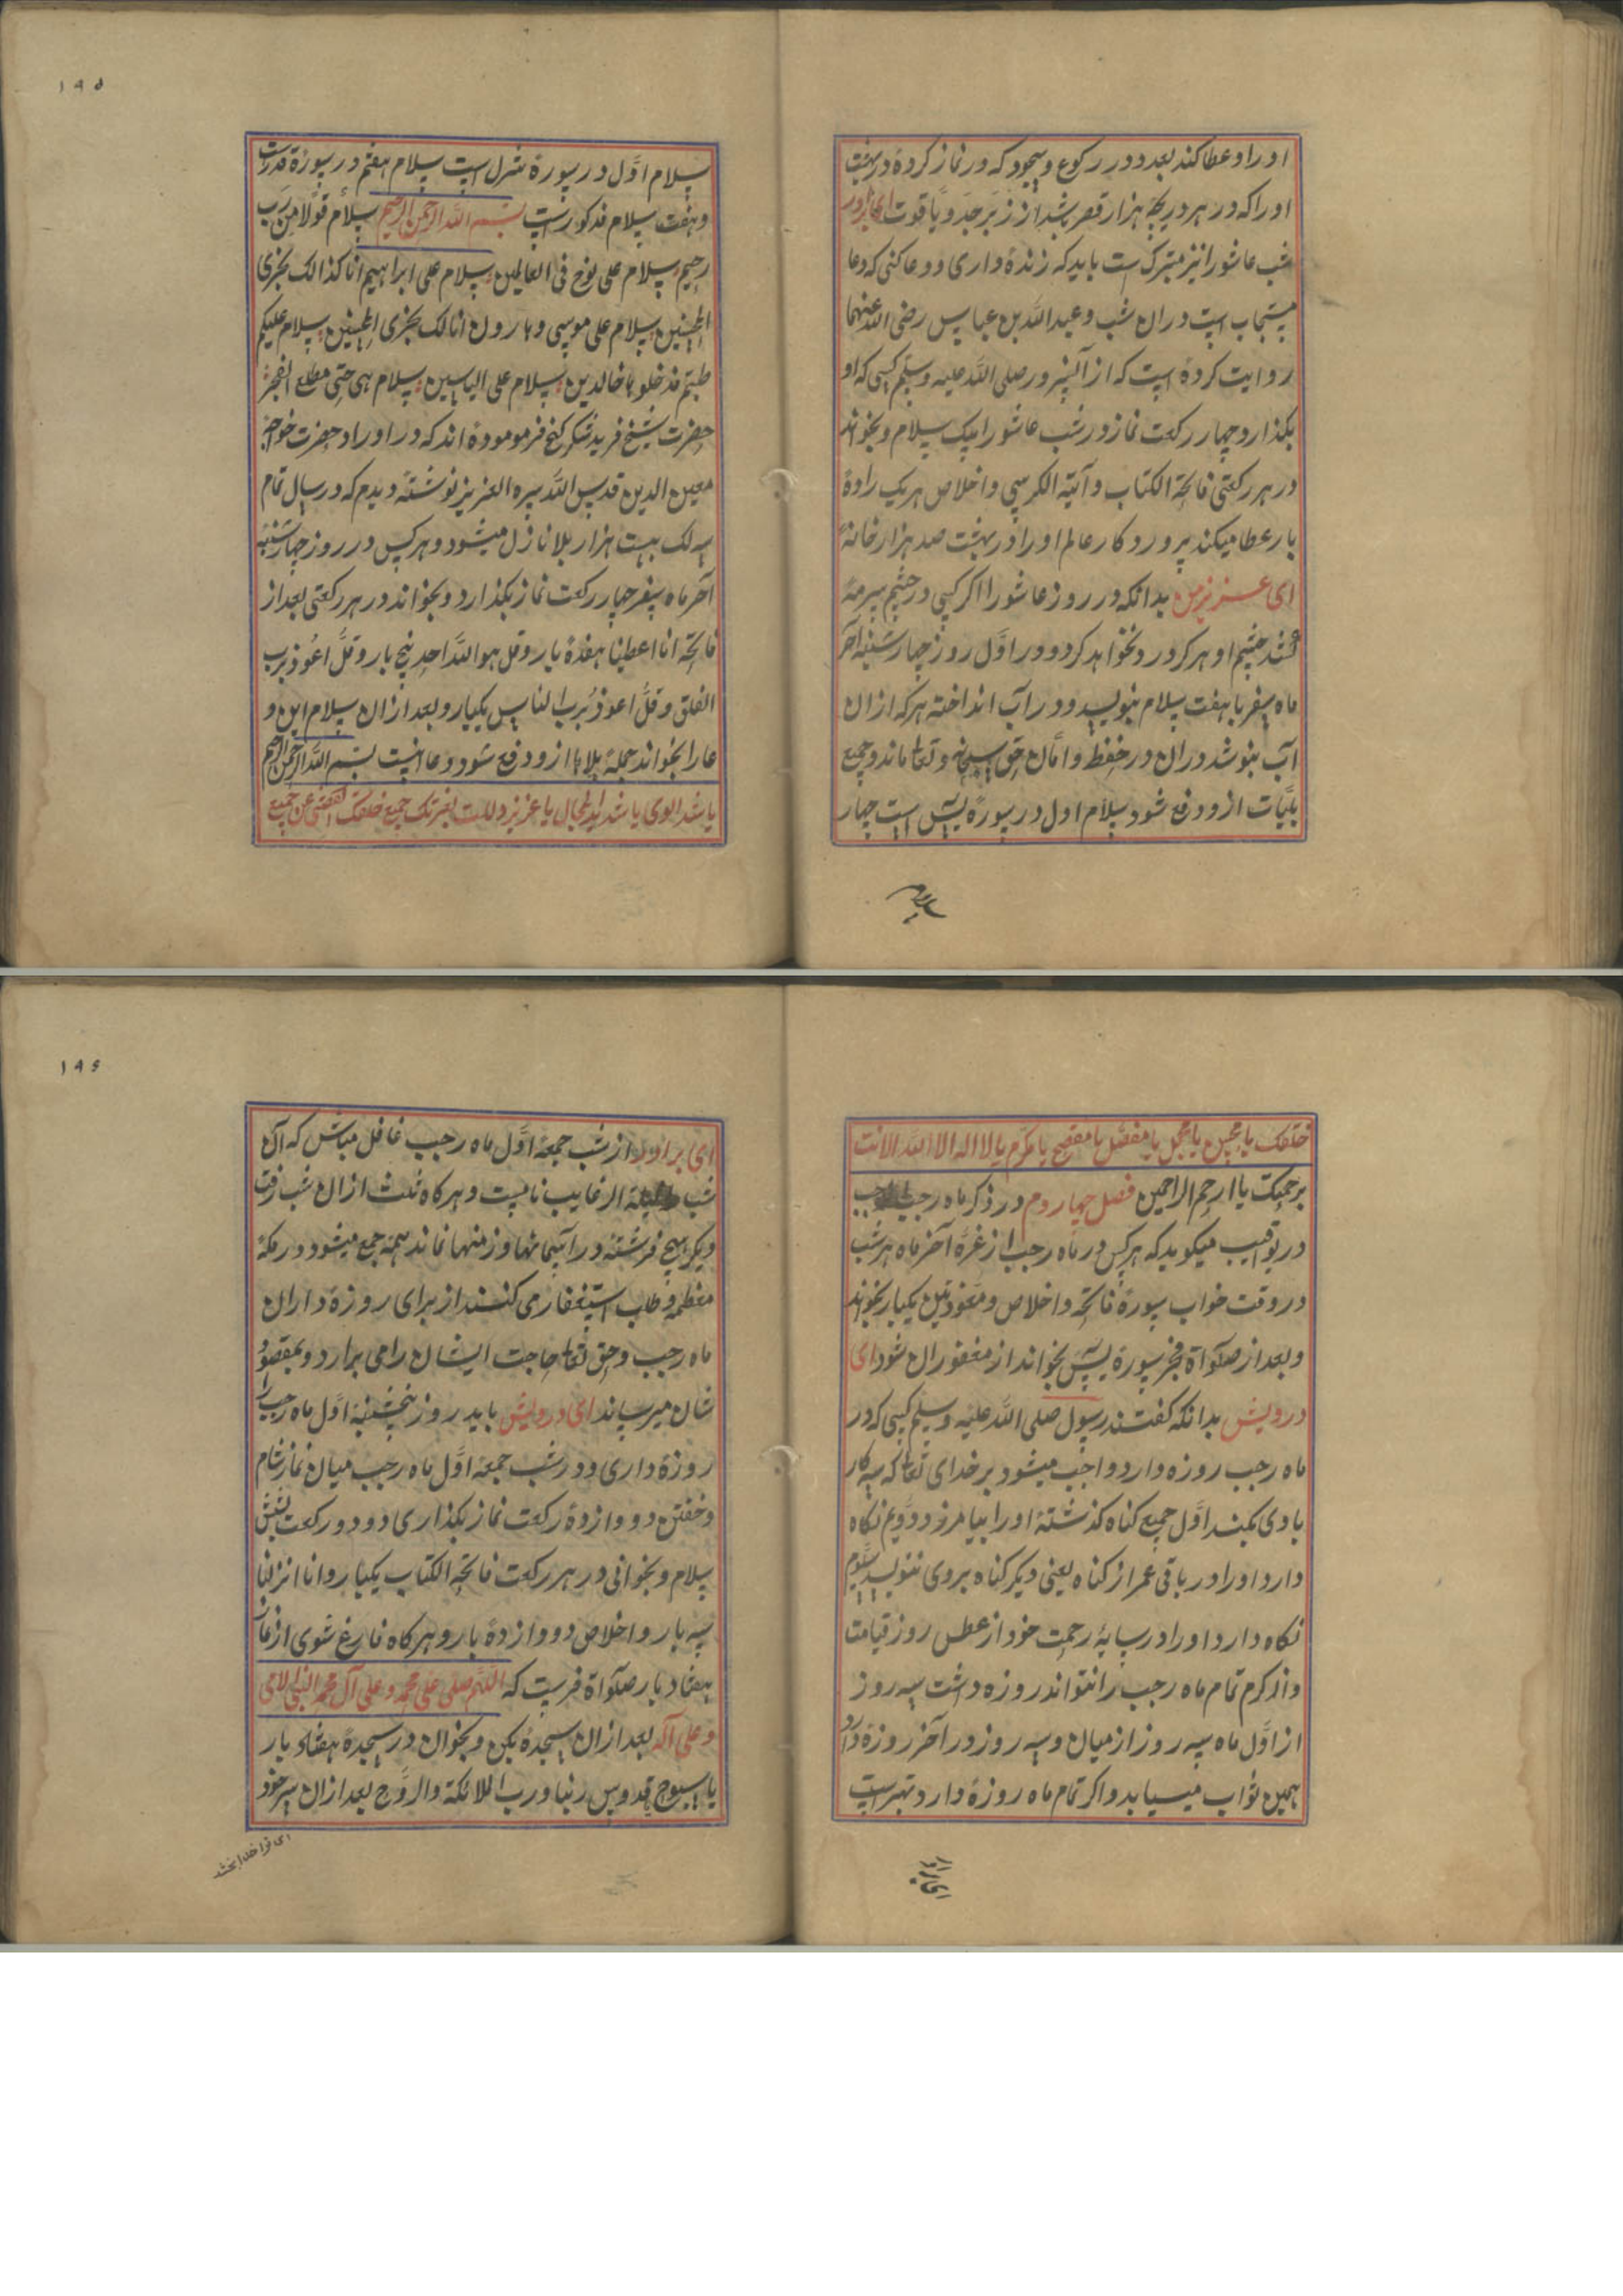 او را و عطا کند بعدد در رکوع و سجود که در نماز کرده در بهشت
او را که در هر دریچه هزار قصر باشد از زبرجد و یاقوت ای برادر
شب عاشورا نیز متبرک ست باید که زنده داری و دعا کنی که دعا
مستجاب است دران شب و عبد الله بن عباس رضی الله عنهما
روایت کرده است که از آنسرور صلی الله علیه وسلم کسی که او
بگذارد چهار رکعت نماز در شب عاشورا بیک سلام و بخواند
در هر رکعتی فاتحة الکتاب و آیته الکرسی و اخلاص هر یک را ده
بار عطا میکند پروردگار عالم او را در بهشت صد هزار خانه
ای عزیز من بدانکه در روز عاشورا اگر کسی در چشم سرمه
کشد چشم او هرگز درد نخواهد کرد و در اول روز چهارشنبه آخر
ماه سفر با هفت سلام بنویسد و در آب انداخته هر که ازان
آب بنوشد دران در حفظ و امان حق سبحانه و تعا ماند و جمیع
بلیات ازو دفع شود سلام اول در سورة یس است چهار
سلام
١٩٥
سلام اول در سورة است سلام هفتم در سورة قدرست
و هفت سلام مذکورست بسم الله الرحمن الرحیم سلام قولا من رب
رحیم سلام علی نوح فی العالمین سلام علی ابراهیم انا کذالک نجزی
المحسنین سلام علی موسی و هارون انا لک نجزی المحسنین سلام علیکم
طبتم فدخلوها خالدین سلام علی الیاسین سلام هی حتی مطلع الفجر
حضرت شیخ فرید شکر گنج فرمومودة اند که در اوراد حضرت خواجه
معین الدین قدس الله سره العزیز نوشته دیدم که در سال تمام
سه لک بیست هزار بلا نازل میشود و هر کس در روز چهارشنبه
آخر ماه سفر چهار رکعت نماز بگذارد و بخواند در هر رکعتی بعد از
فاتحه انا اعطینا هفدة بار و قل هو الله احد پنج بار و قل اعوذ برب
الفلق و قل اعوذ برب الناس یکبار و بعد ازان سلام این د
عا را بخواند جملة بلاها ازو دفع شود و دعا اینست بسم الله الرحمن الرحیم
یا شد القوی یا شدید المحال یا عزیز دللت بعزتک جمیع خلقک اکفنی عن جمیع
خلقک یا محسن یا مجمل یا مفضل یا یا مکرم یا لا اله الا الله الا انت
برحمتک یا ارحم الراحمین فصل چهاردم در ذکر ماه رجب
در میگوید که هر کس در ماه رجب از غرّه آخر ماه هر شب
در وقت خواب سورة فاتحه و اخلاص و معوذتین یکبار بخواند
و بعد از صلواة فجر سورة یس بخواند از مغفوران شود ای
درویش بدانکه گفتند رسول صلی الله علیه وسلم کسی که در
ماه رجب روزه دارد واجب میشود بر خدای تعا که سه کار
با وی بکند اول جمیع گناه گذشته او را بیامرزد دویم نگاه
دارد او را در باقی عمر از گناه یعنی دیگر گناه بر وی ننویسد سیوم
نگاه دارد او را در سایهٔ رحمت خود از عطس روز قیامت
و اگرم تمام ماه رجب را نتواند روزه داشت سه روز
از اول ماه سه روز از میان و سه روز در آخر روزة دارد
همین ثواب میسابد و اگر تمام ماه روزة دارد بهترست
ای برادر
١٩٦
ای برادر از شب جمعه اول ماه رجب غافل مباش که آن
شب لیلة الرغایب نامست و هر گاه ثلث ازان شب رفت
دیگر هیچ فرشته در آسمانها و زمنهها نماند همه جمع میشود در مکهٔ
معظمه و طلب استغفار می کنند از برای روزة داران
ماه رجب و حق تعا حاجت ایشان را می برارد و بمقصود
شان میرساند ای درویش باید روز پنجشنبه اول ماه رجب را
روزة داری و در شب جمعه اول ماه رجب میان نماز شام
و خفتن دووازدة رکعت نماز بگذاری دو دو رکعت بشش
سلام و بخوانی در هر رکعت فاتحة الکتاب یکبار و انا انزلنا
سه بار و اخلاص دووازدة بار و هر گاه فارغ شوی از نماز
هفتاد بار صلواة فرست که اللهم صلی علی محمد و علی آل محمد النبی الامی
و علی آله بعد ازان سجدة بکن و بخوان در سجدة هفتاد بار
یا سبوح قدوس ربنا و رب الملائکة والروح بعد ازان سر خود
ای ترا خدا بخشد